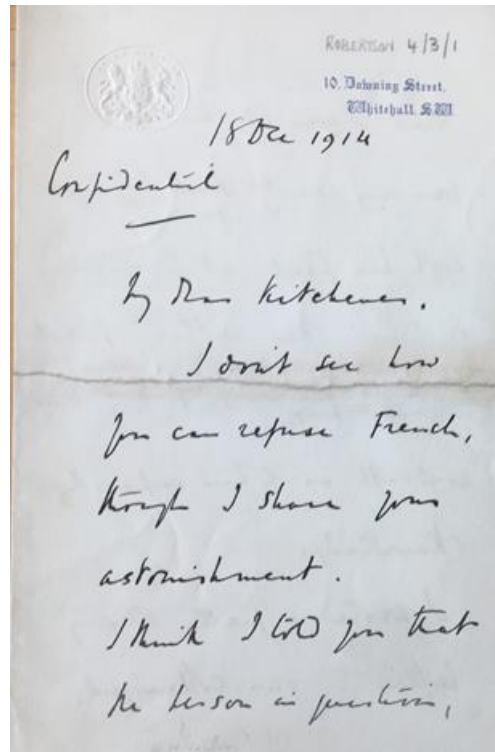 ROBERTSON 4/3/1
10, Downing Street,
Whitehall. S.W.
18 Dec 1914
Confidential
My Dear Kitchener.
I don't see how
you can refuse French,
though I share your
astonishment.
I think I told you that
the person in question,